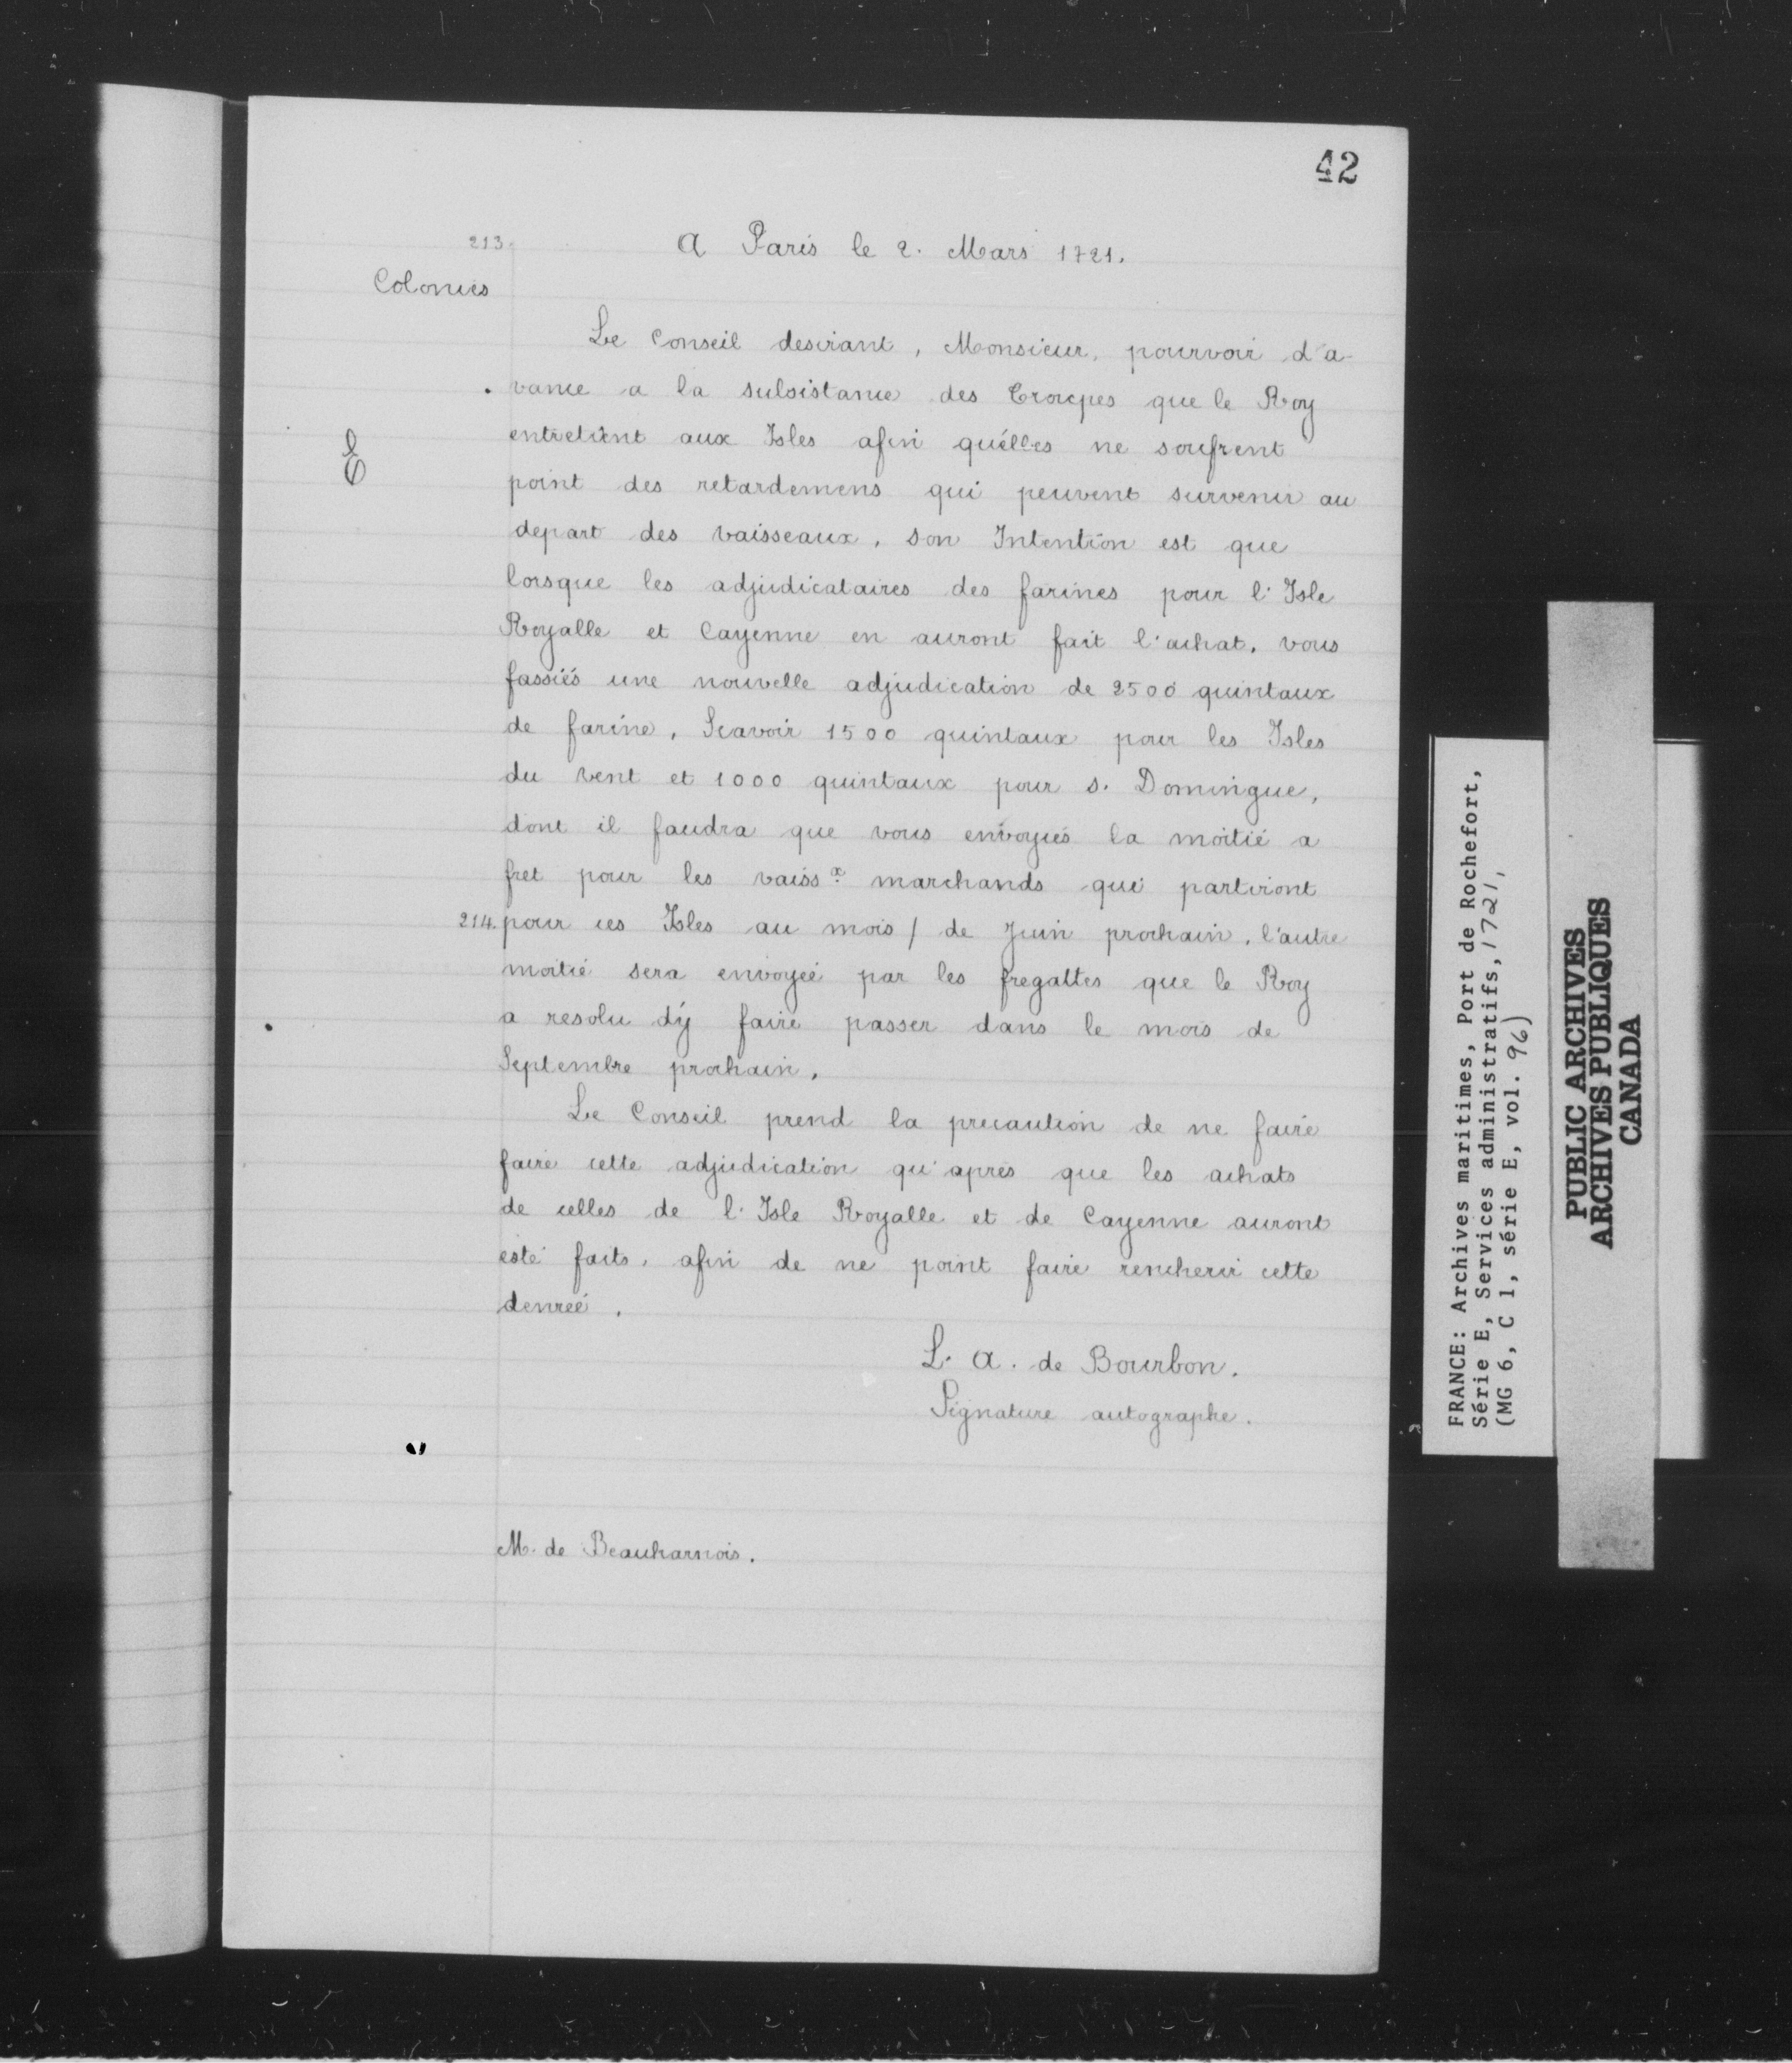 42
213.
A Paris le 2. Mars 1721.
Colonies
Le Conseil desirant, Monsieur, pourvoir d'a-
vance a la subsistance des Troupes que le Roy
entretient aux Isles afin qu'elles ne soufrent
E
point des retardemens qui peuvent survenir au
depart des vaisseaux, son Intention est que
lorsque les adjudicataires des farines pour l'Isle
Royalle et Cayenne en auront fait l'achat, vous
fassiés une nouvelle adjudication de 2500 quintaux
de farine, Scavoir 1500 quintaux pour les Isles
du vent et 1000 quintaux pour S. Domingue,
dont il faudra que vous envoyiés la moitié a
fret pour les vaissx marchands qui partiront
214. pour ces Isles au mois / de Juin prochain, l'autre
moitié sera envoyeé par les fregattes que le Roy
a resolu d'ÿ faire passer dans le mois de
Septembre prochain.
Le Conseil prend la precaution de ne faire
faire cette adjudication qu'apres que les achats
de celles de l'Isle Royalle et de Cayenne auront
esté faits, afin de ne point faire rencherir cette
denreé.
L. A. de Bourbon.
Signature autographe.
M. de Beauharnois.
FRANCE: Archives maritimes, Port de Rochefort,
Série E, Services administratifs, 1721,
(MG 6, C 1, série E, vol. 96)
PUBLIC ARCHIVES
ARCHIVES PUBLIQUES
CANADA